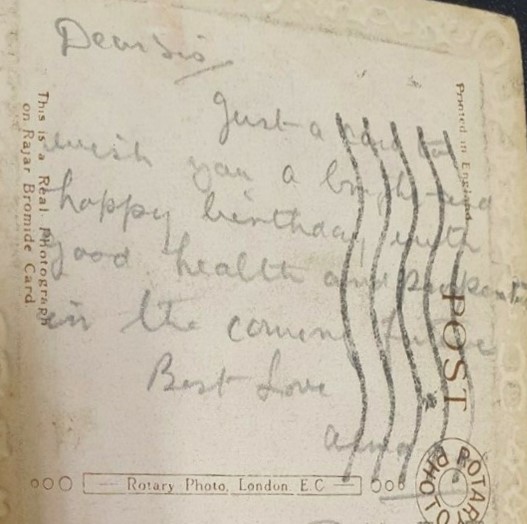 Dear Sis
Just a card to
wish you a bright and
happy birthday with
good health and
in the coming future
Best Love
This is a Real Photograph
on Rajar Bromide Card.
Printed in England
POST
Rotary Photo, London. E.C
ROTARY
PHOTO